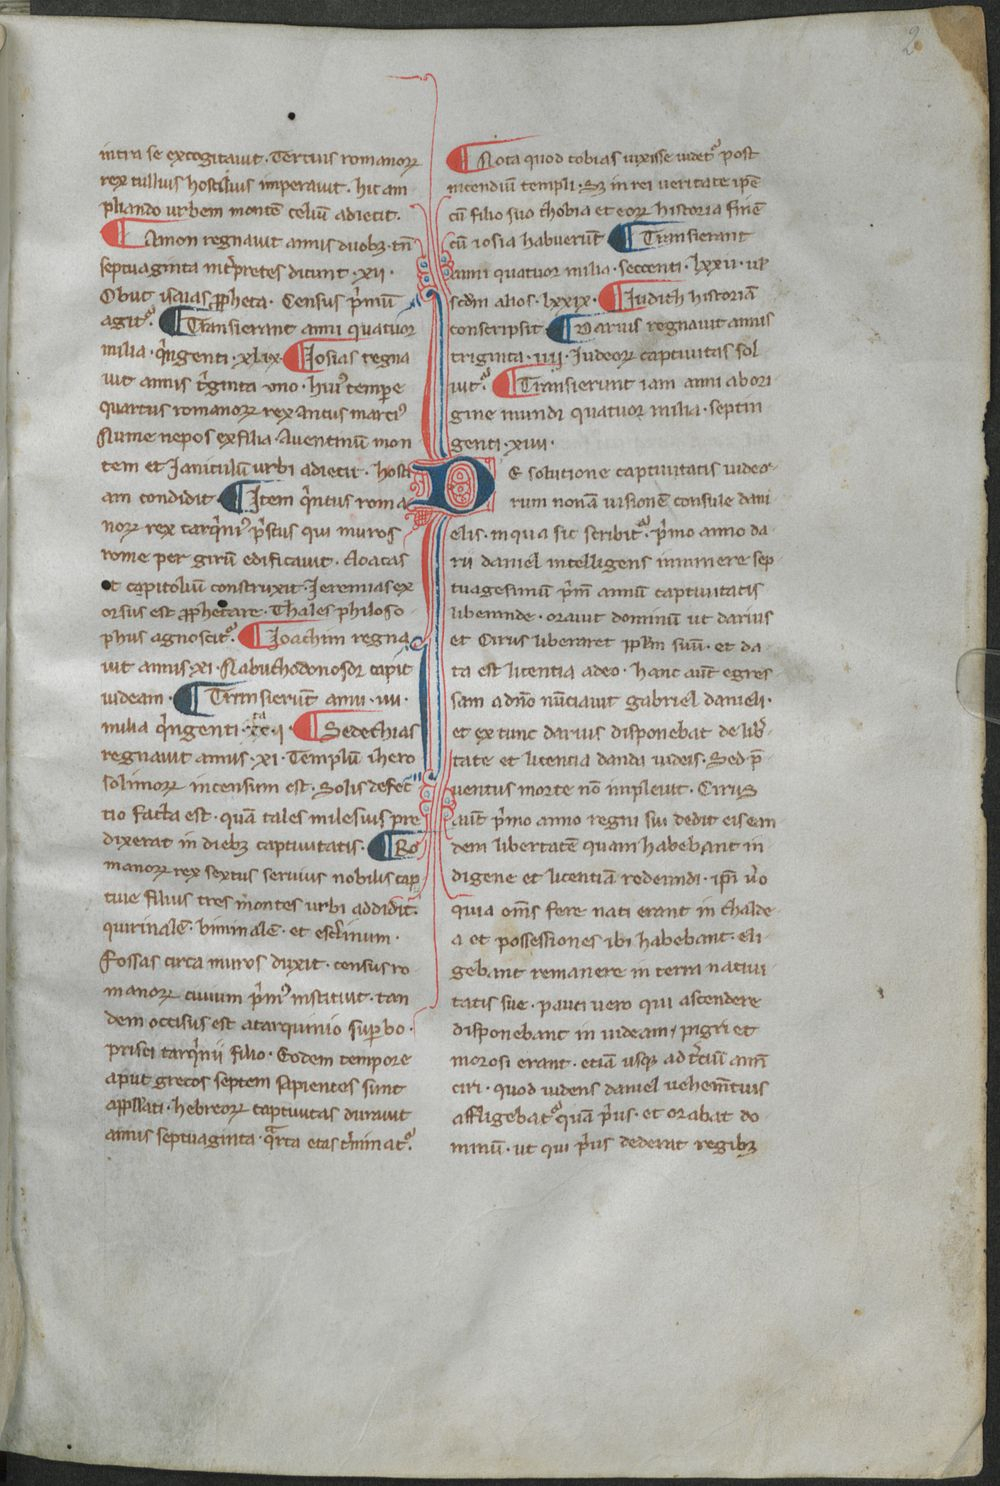 2
intra se excogitauit. Tertius romanoꝝ
rex tullius hostilius imperauit. hic am
pliando urbem montē celiū adiecit.
¶ Amon regnauit annis duobꝫ. tn̄
septuaginta int̄pretes dicunt .xii.
Obiit isaias ꝓpheta. Census p̄mū
agit᷑. ¶ Transierant anni quatuor
milia. q̄ngenti .xlix. ¶ Iosias regna
uit annis t̄ginta uno. huiꝰ temꝑe
quartus romanoꝝ rex ancus marciꝰ
Nume nepos ex filia. Auentinū mon
tem et Ianiculū urbi adiecit. hosti
am condidit. ¶ Item q̄ntus roma
noꝝ rex tarq̄niꝰ p̄scus qui muros
rome per girū edificauit. cloacas
et capitoliū construxit. Ieremias ex
orsus est ꝓphetare. Thales philoso
phus agnoscit᷑. ¶ Ioachim regna
uit annis .xi. Nabuchodonosor capit
iudeam. ¶ Transierūt anni .iiii.
milia q̄ngenti.
¶ Sedechias
regnauit annis .xi. Templū ihero
solimoꝝ incensum est. Solis defec
tio facta est. quā tales milesius pre
dixerat in diebꝫ captiuitatis. ¶ Ro
manoꝝ rex sextus seruius nobilis cap
tiue filius tres montes urbi addidit.
quirinalē. uiminalē. et esclinum.
Fossas circa muros duxit. census ro
manoꝝ ciuium p̄mꝰ instituit. tan
dem occisus est a tarquinio suꝑbo.
prisci tarq̄nii filio. Eodem tempore
aput grecos septem sapientes sunt
app̄llati. hebreoꝝ captiuitas durauit
annis septuaginta. q̄rta etas t̄minat᷑.
¶ Nota quod tobias uixisse uidet᷑ post
incendiū templi. Sꝫ in rei ueritate ip̄e
cū filio suo thobia et eoꝝ historia finē
cū iosia habuerūt ¶ Transierant
anni quatuor milia. seccenti .lxxii. ul̄
scd̄m alios .lxxix. ¶ Iudith historiā
conscripsit. ¶ Darius regnauit annis
triginta .iiij. Iudeoꝝ captiuitas sol
uit᷑. ¶ Transierunt iam anni ab ori
gine mundi quatuor milia. septin
genti .xiiii.
De solutione captiuitatis iudeo
rum nonā uisionē consule dani
elis. in qua sic scribit᷑. p̄mo anno da
rii daniel intelligens imminere sep
tuagesimū p̄m̄ annū captiuitatis
liberande. orauit dominū ut darius
et Cirus liberaret pp̄lm suū. et da
ta est licentia a deo. hanc aūt egres
sam a dn̄o nūciauit gabriel danieli.
et ex tunc darius disponebat de lib̄
tate et licentia danda iudeis. Sed p̄
uentus morte nō impleuit. Cirus
aūt p̄mo anno regni sui dedit eis ean
dem libertatē quam habebant in
digene et licentiā redeundi. ip̄i u̇o
quia om̄s fere nati erant in chalde
a et possessiones ibi habebant. eli
gebant remanere in terra natiui
tatis sue. pauci uero qui ascendere
disponebant in iudeam, pigri et
morosi erant. etiā usqꝫ ad t̄ciū ann̄
ciri. quod uidens daniel uehem̄tius
affligebat᷑ quā p̄us. et orabat do
minū. ut qui p̄us dederat regibꝫ